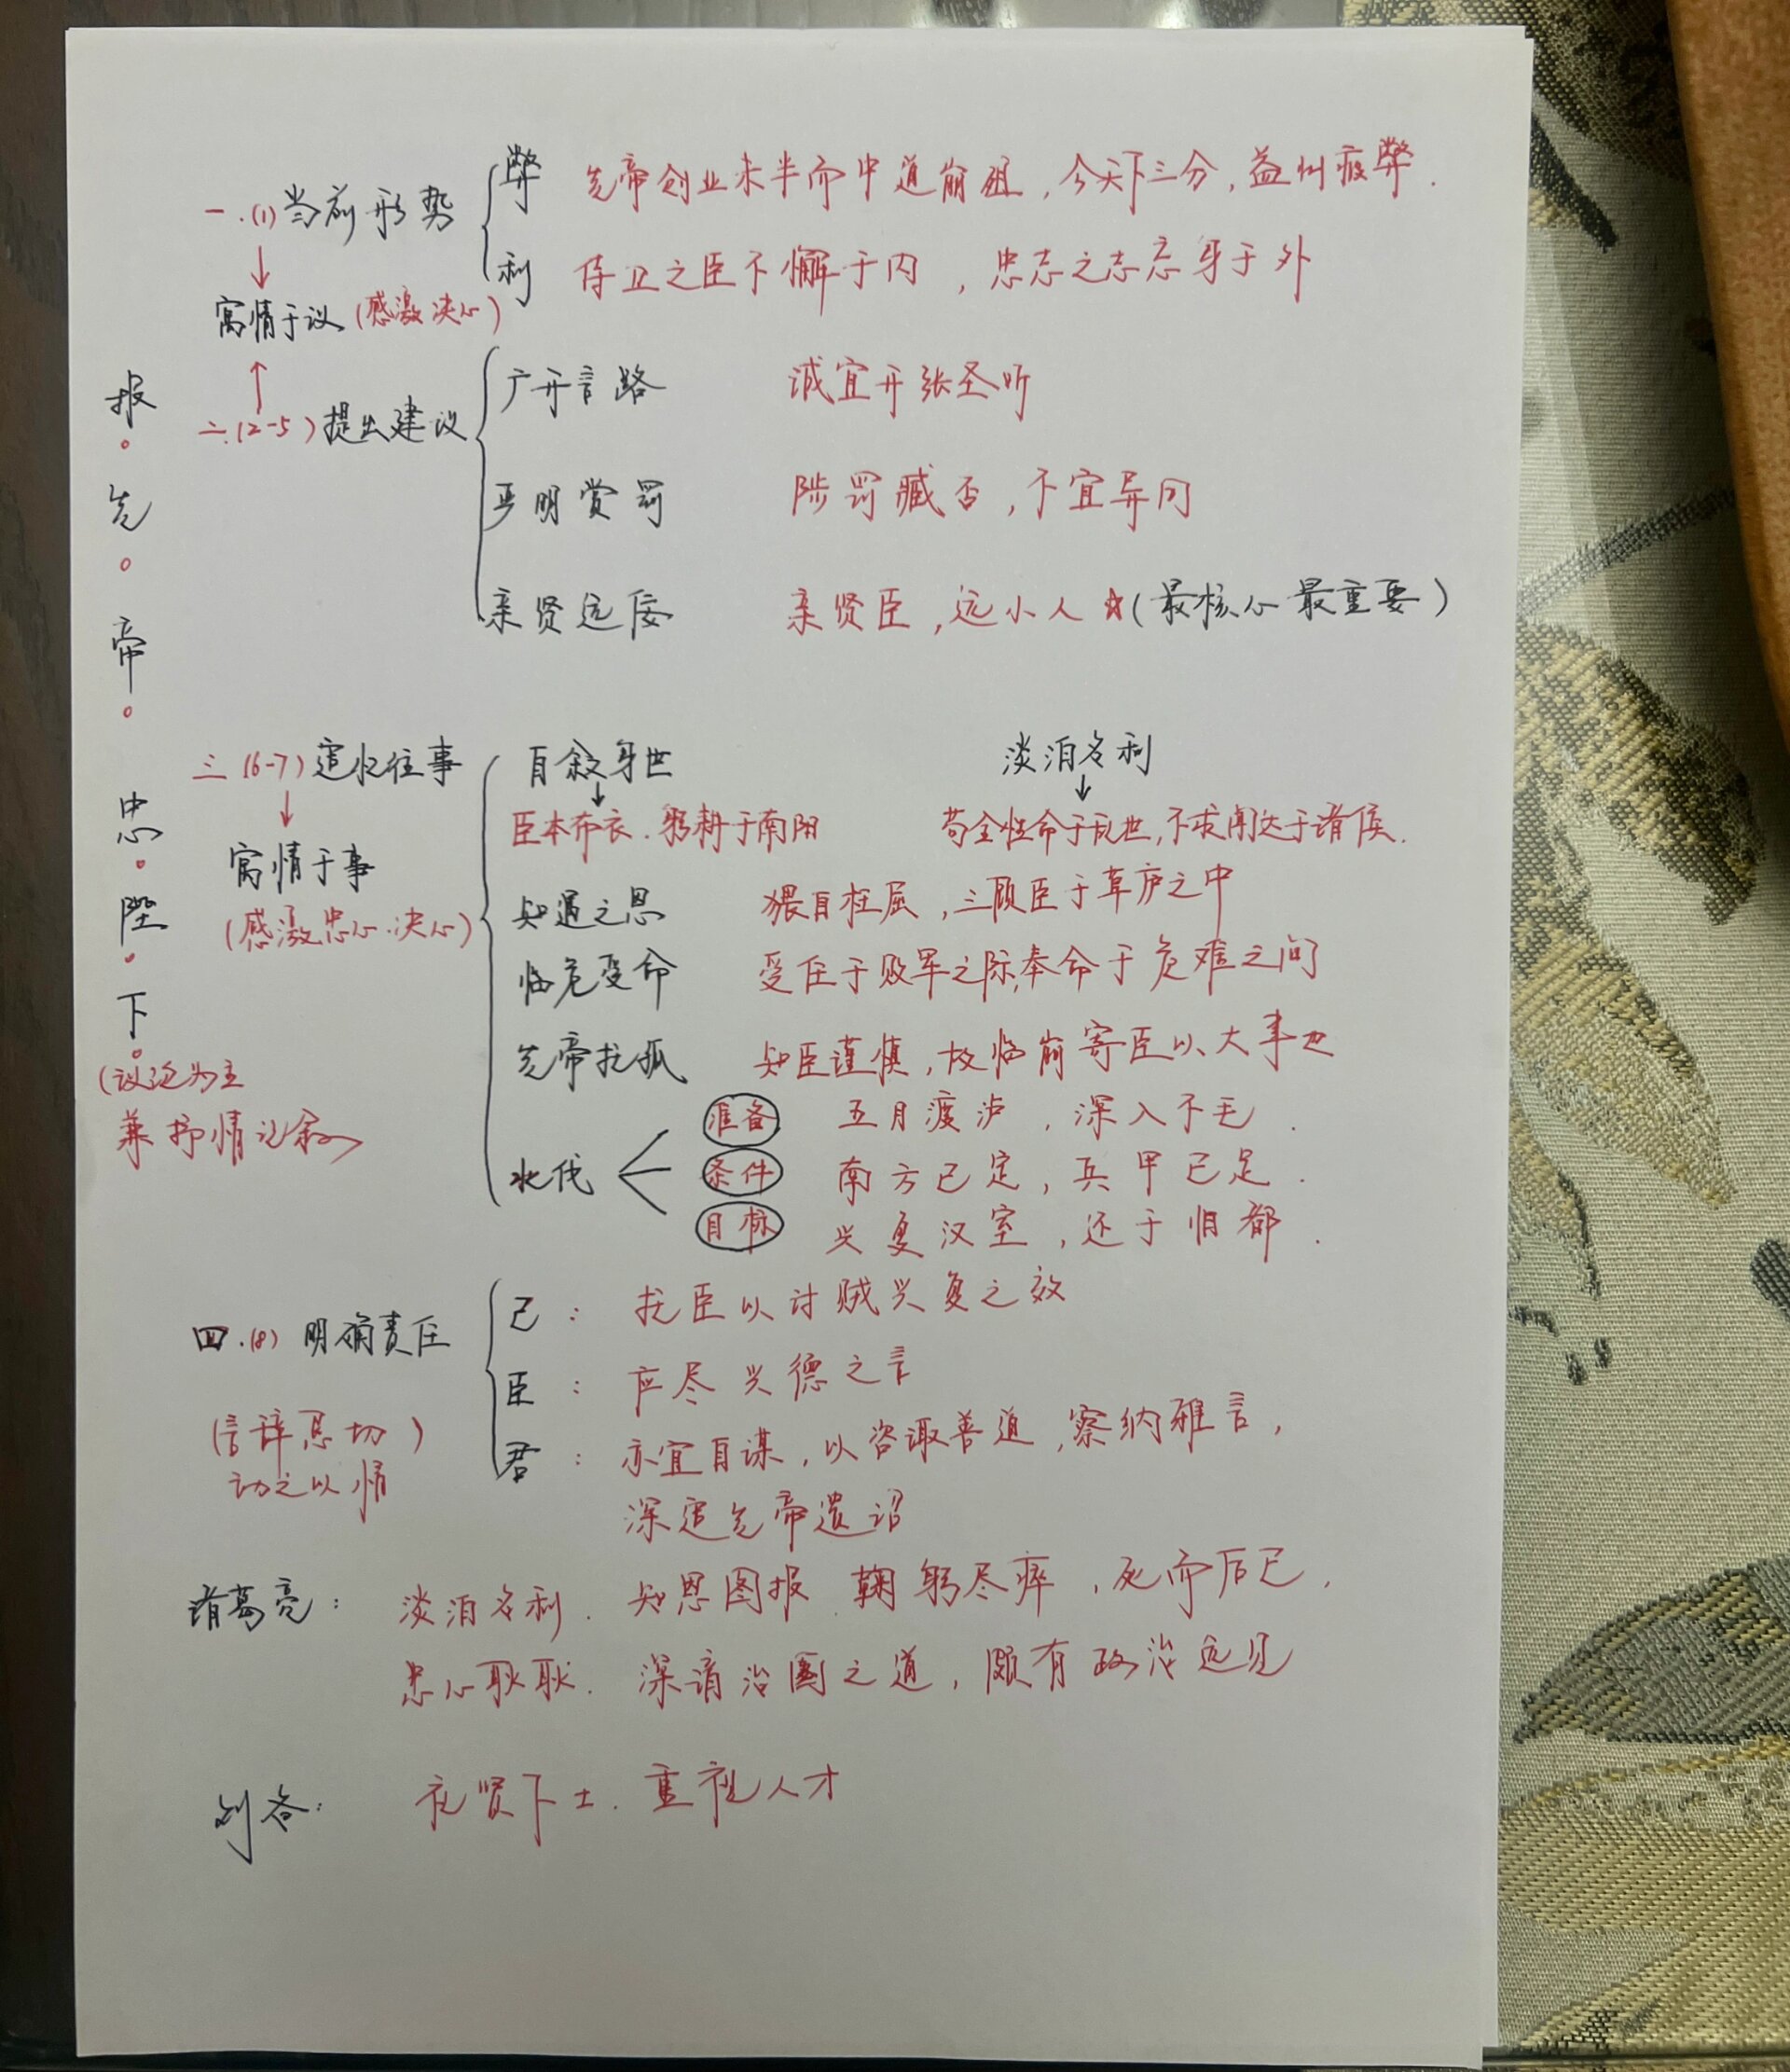 报·先·帝·忠·陛·下
(议论为主
兼抒情记叙)
一.(1)当前形势
弊 先帝创业未半而中道崩殂,今天下三分,益州疲弊.
利 侍卫之臣不懈于内,忠志之志忘身于外
寓情于议(感激 决心)
二.(2-5)提出建议
广开言路 诚宜开张圣听
严明赏罚 陟罚臧否,不宜异同
亲贤远佞 亲贤臣,远小人☆(最核心最重要)
三(6-7)追忆往事
寓情于事
(感激.忠心.决心)
自叙身世 淡泊名利
臣本布衣.躬耕于南阳 苟全性命于乱世,不求闻达于诸侯.
知遇之恩 猥自枉屈,三顾臣于草庐之中
临危受命 受任于败军之际,奉命于危难之间
先帝托孤 知臣谨慎,故临崩寄臣以大事也
北伐
准备 五月渡泸,深入不毛.
条件 南方已定,兵甲已足.
目标 兴复汉室,还于旧都.
四.(8)明确责任
(言辞恳切)
动之以情
己: 托臣以讨贼兴复之效
臣: 应尽兴德之言
君: 亦宜自谋,以咨诹善道,察纳雅言,
深追先帝遗诏
诸葛亮: 淡泊名利.知恩图报.鞠躬尽瘁,死而后已.
忠心耿耿.深谙治国之道,颇有政治远见
刘备: 礼贤下士.重视人才